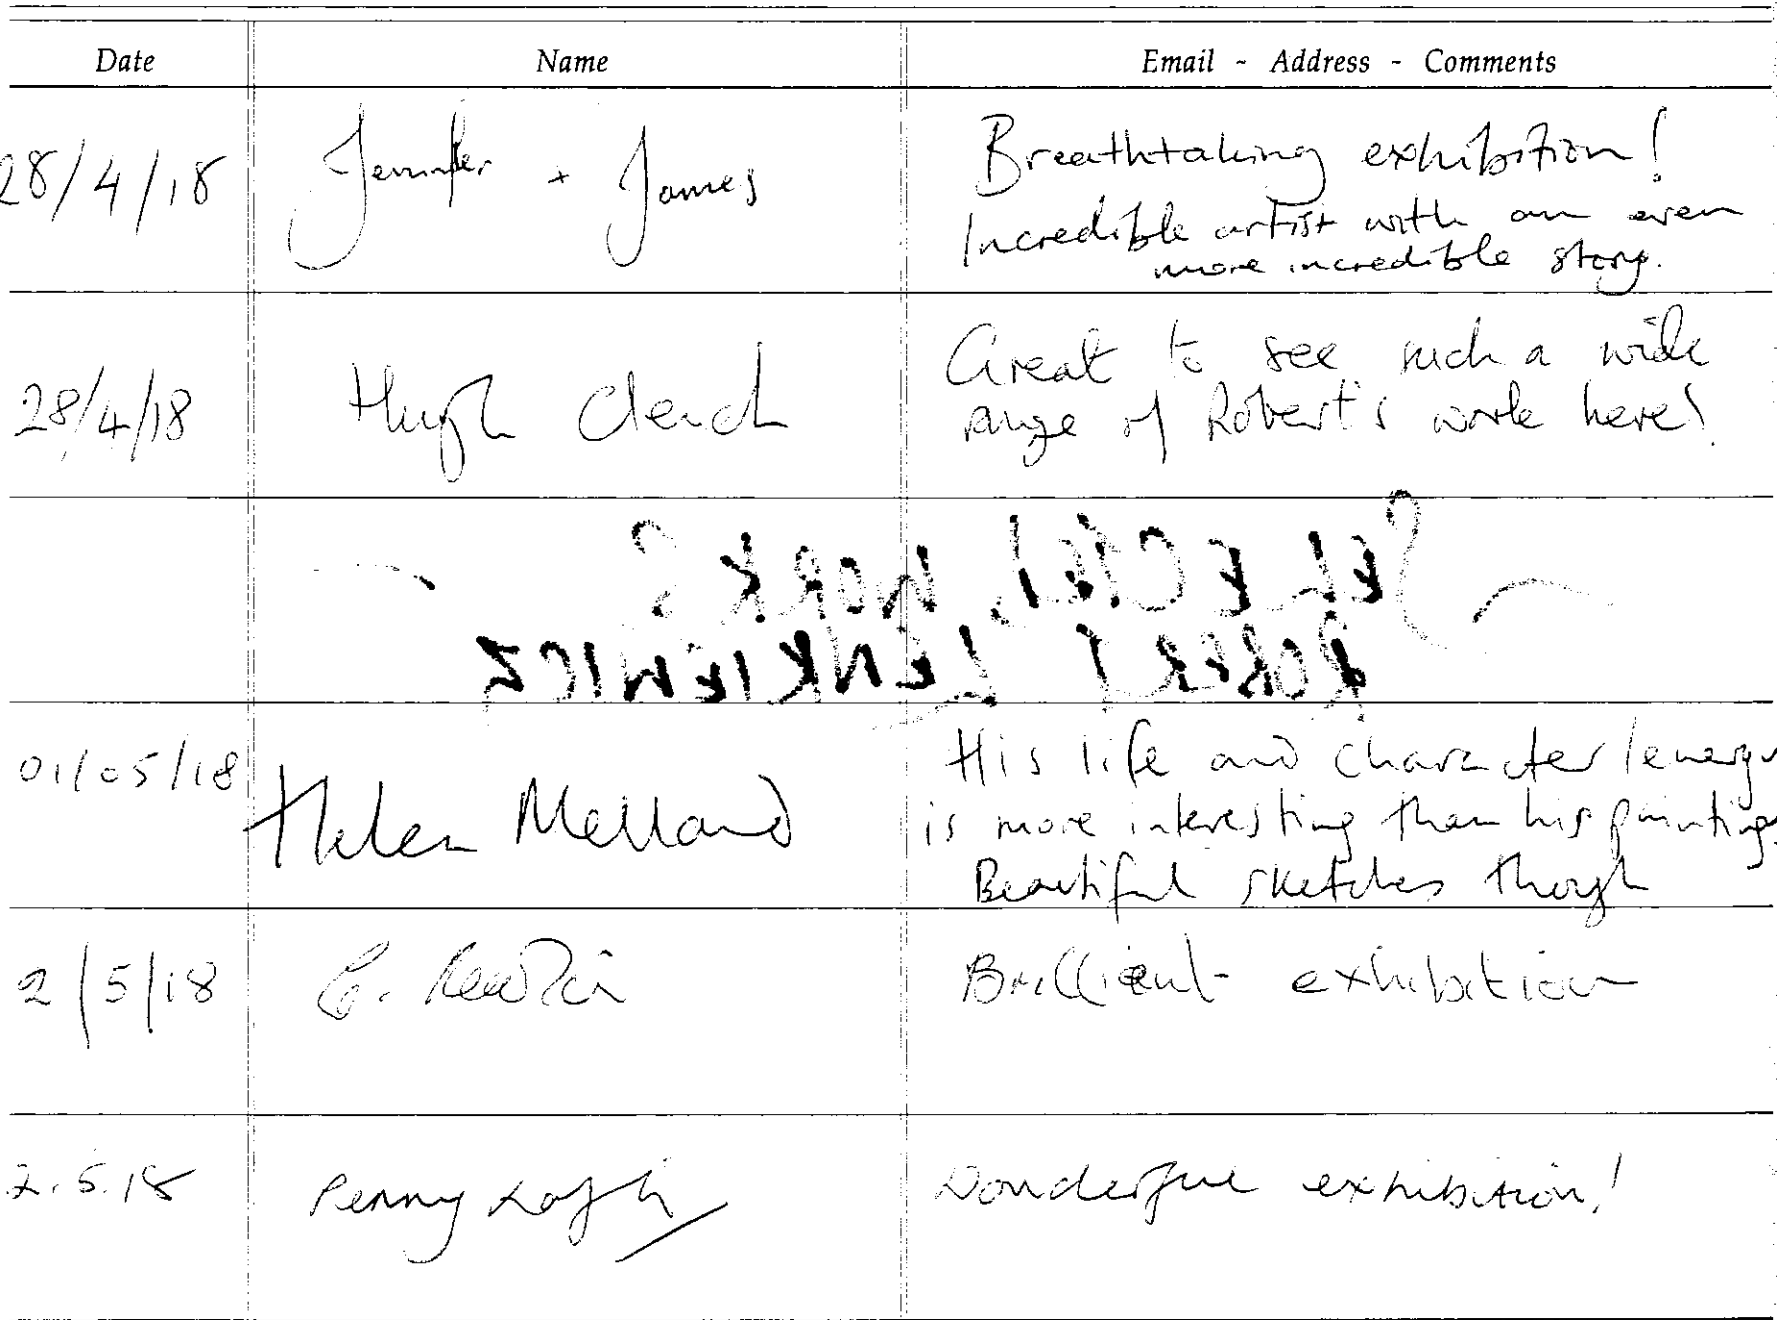 Date Name Email - Address - Comments
28/4/18 Jennifer + James Breathtaking exhibition!
Incredible artist with an even
more incredible story.
28/4/18 Hugh Great to see such a wide
range of Robert's work here!
WORK
ROBERT LENKIEWICZ
01/05/18 Helen Melland His life and character/energy
is more interesting than his paintings
Beautiful sketches though
2/5/18 Brilliant exhibition
2.5.18 Penny Wonderful exhibition!